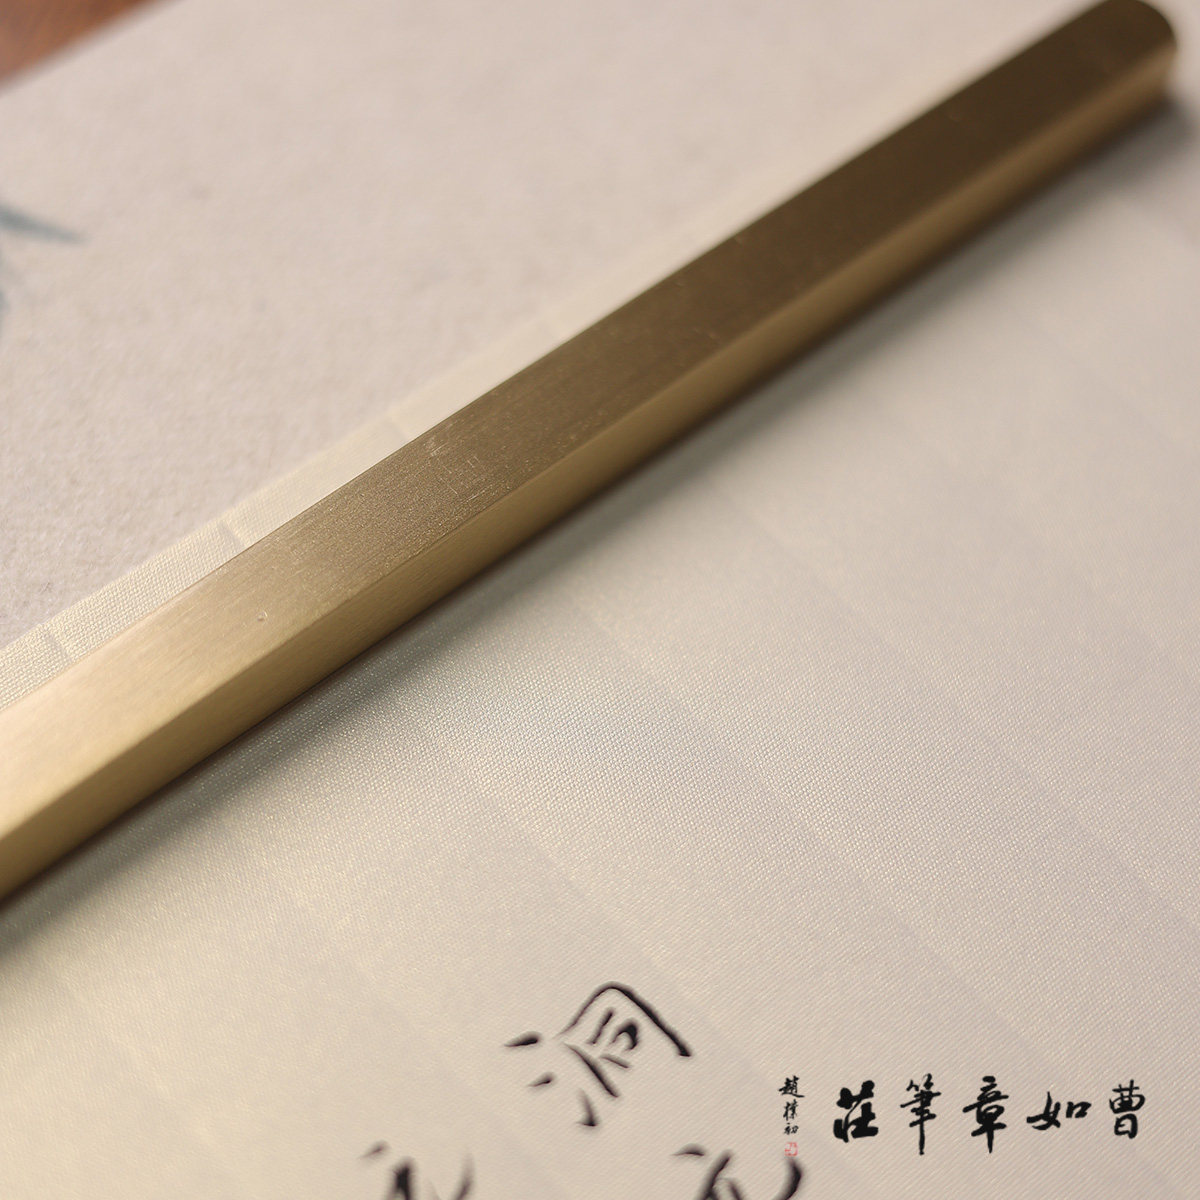 洞
曹如章筆莊
趙樸初